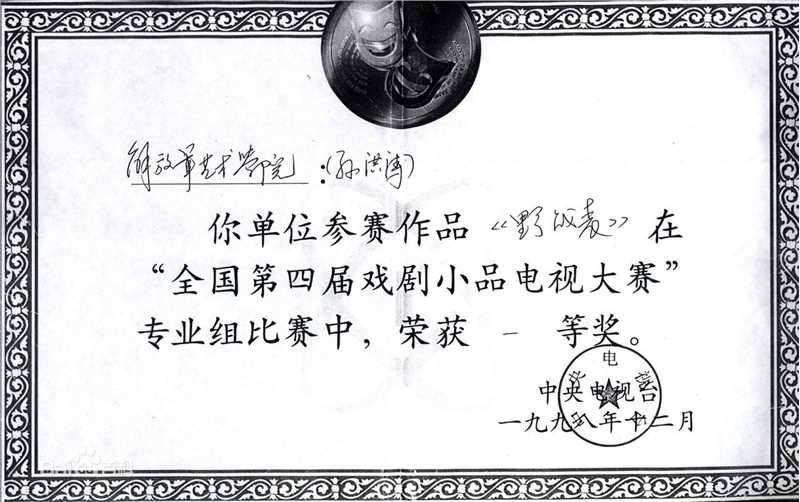 解放军艺术学院:(孙洪涛)
你单位参赛作品《野战表》在
“全国第四届戏剧小品电视大赛”
专业组比赛中，荣获 一 等奖。
中央电视台
一九九八年十二月
Baidu百科